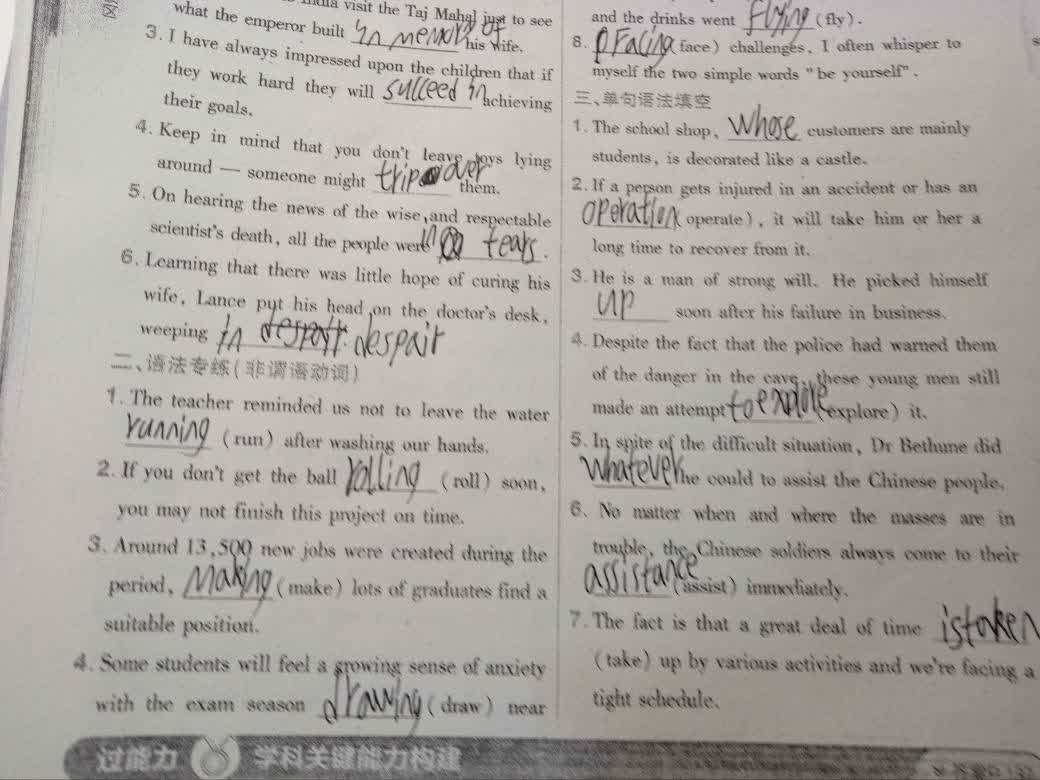 India visit the Taj Mahal just to see
what the emperor built in memory of his wife.
3. I have always impressed upon the children that if
they work hard they will succeed in achieving
their goals.
4. Keep in mind that you don't leave toys lying
around — someone might trip over them.
5. On hearing the news of the wise and respectable
scientist's death, all the people were in tears.
6. Learning that there was little hope of curing his
wife, Lance put his head on the doctor's desk,
weeping in despair
二、语法专练(非谓语动词)
1. The teacher reminded us not to leave the water
running (run) after washing our hands.
2. If you don't get the ball rolling (roll) soon,
you may not finish this project on time.
3. Around 13,500 new jobs were created during the
period, making (make) lots of graduates find a
suitable position.
4. Some students will feel a growing sense of anxiety
with the exam season drawing (draw) near
and the drinks went flying (fly).
8. Facing face) challenges, I often whisper to
myself the two simple words "be yourself".
三、单句语法填空
1. The school shop, whose customers are mainly
students, is decorated like a castle.
2. If a person gets injured in an accident or has an
operation (operate), it will take him or her a
long time to recover from it.
3. He is a man of strong will. He picked himself
up soon after his failure in business.
4. Despite the fact that the police had warned them
of the danger in the cave, these young men still
made an attempt to explore (explore) it.
5. In spite of the difficult situation, Dr Bethune did
whatever he could to assist the Chinese people.
6. No matter when and where the masses are in
trouble, the Chinese soldiers always come to their
assistance (assist) immediately.
7. The fact is that a great deal of time is taken
(take) up by various activities and we're facing a
tight schedule.
过能力 学科关键能力构建